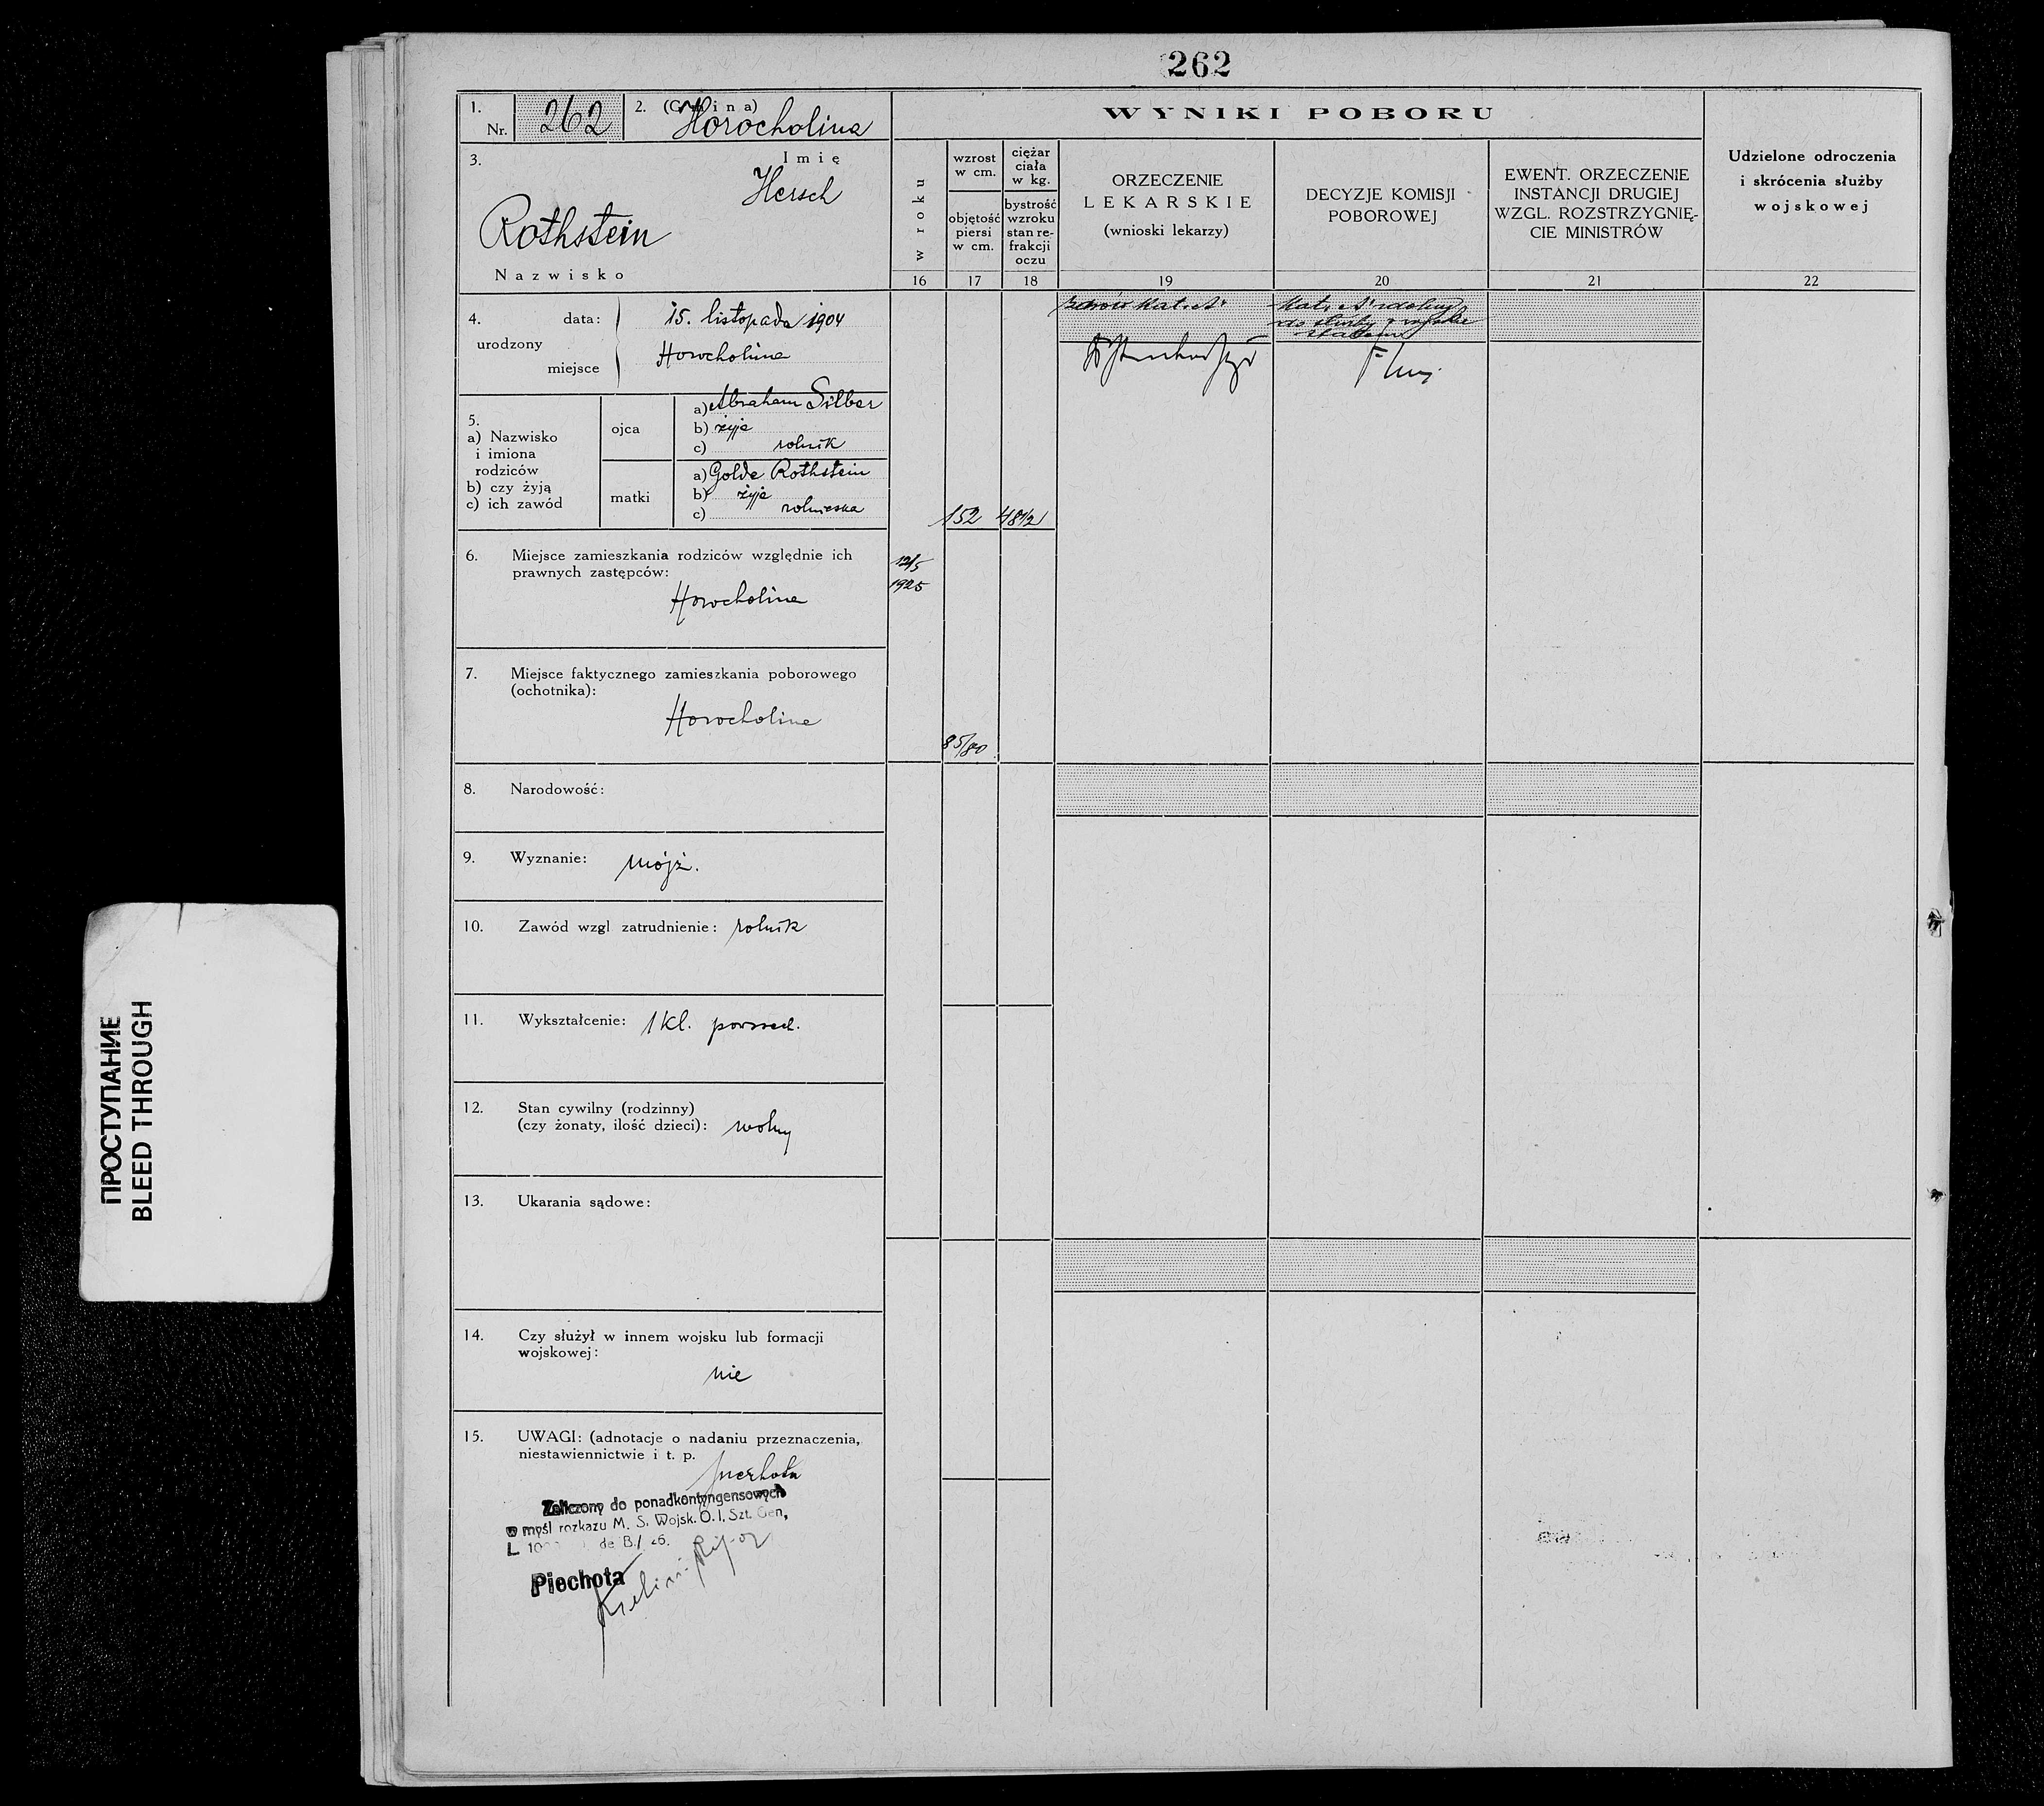 262
1.
Nr. 262
2. (Gmina) Horocholina
3.
Imię
Hersch
Rothstein
Nazwisko
WYNIKI POBORU
w roku
wzrost
w cm.
objętość
piersi
w cm.
ciężar
ciała
w kg.
bystrość
wzroku
stan re-
frakcji
oczu
ORZECZENIE
LEKARSKIE
(wnioski lekarzy)
DECYZJE KOMISJI
POBOROWEJ
EWENT. ORZECZENIE
INSTANCJI DRUGIEJ
WZGL. ROZSTRZYGNIĘ-
CIE MINISTRÓW
Udzielone odroczenia
i skrócenia służby
wojskowej
16 17 18 19 20 21 22
4. data: 15. listopada 1904
urodzony
miejsce Horocholina
5.
a) Nazwisko
i imiona
rodziców
b) czy żyją
c) ich zawód
ojca
a) Abraham Silber
b) żyje
c) rolnik
matki
a) Golde Rothstein
b) żyje
c) rolniczka
152 48 1/2
12/5
1925
85/80
zdrów Kat. A
Kat. A zdolny
do służby w wojsku
stałem
6. Miejsce zamieszkania rodziców względnie ich
prawnych zastępców:
Horocholina
7. Miejsce faktycznego zamieszkania poborowego
(ochotnika):
Horocholina
8. Narodowość:
9. Wyznanie: mojż.
10. Zawód wzgl zatrudnienie: rolnik
11. Wykształcenie: 1 kl. powszech.
12. Stan cywilny (rodzinny)
(czy żonaty, ilość dzieci): wolny
13. Ukarania sądowe:
14. Czy służył w innem wojsku lub formacji
wojskowej:
nie
15. UWAGI: (adnotacje o nadaniu przeznaczenia,
niestawiennictwie i t. p.
piechota
Zaliczony do ponadkontyngensowych
w myśl rozkazu M. S. Wojsk. O. I. Szt. Gen,
L de B./ 26.
Piechota
ПРОСТУПАНИЕ
BLEED THROUGH